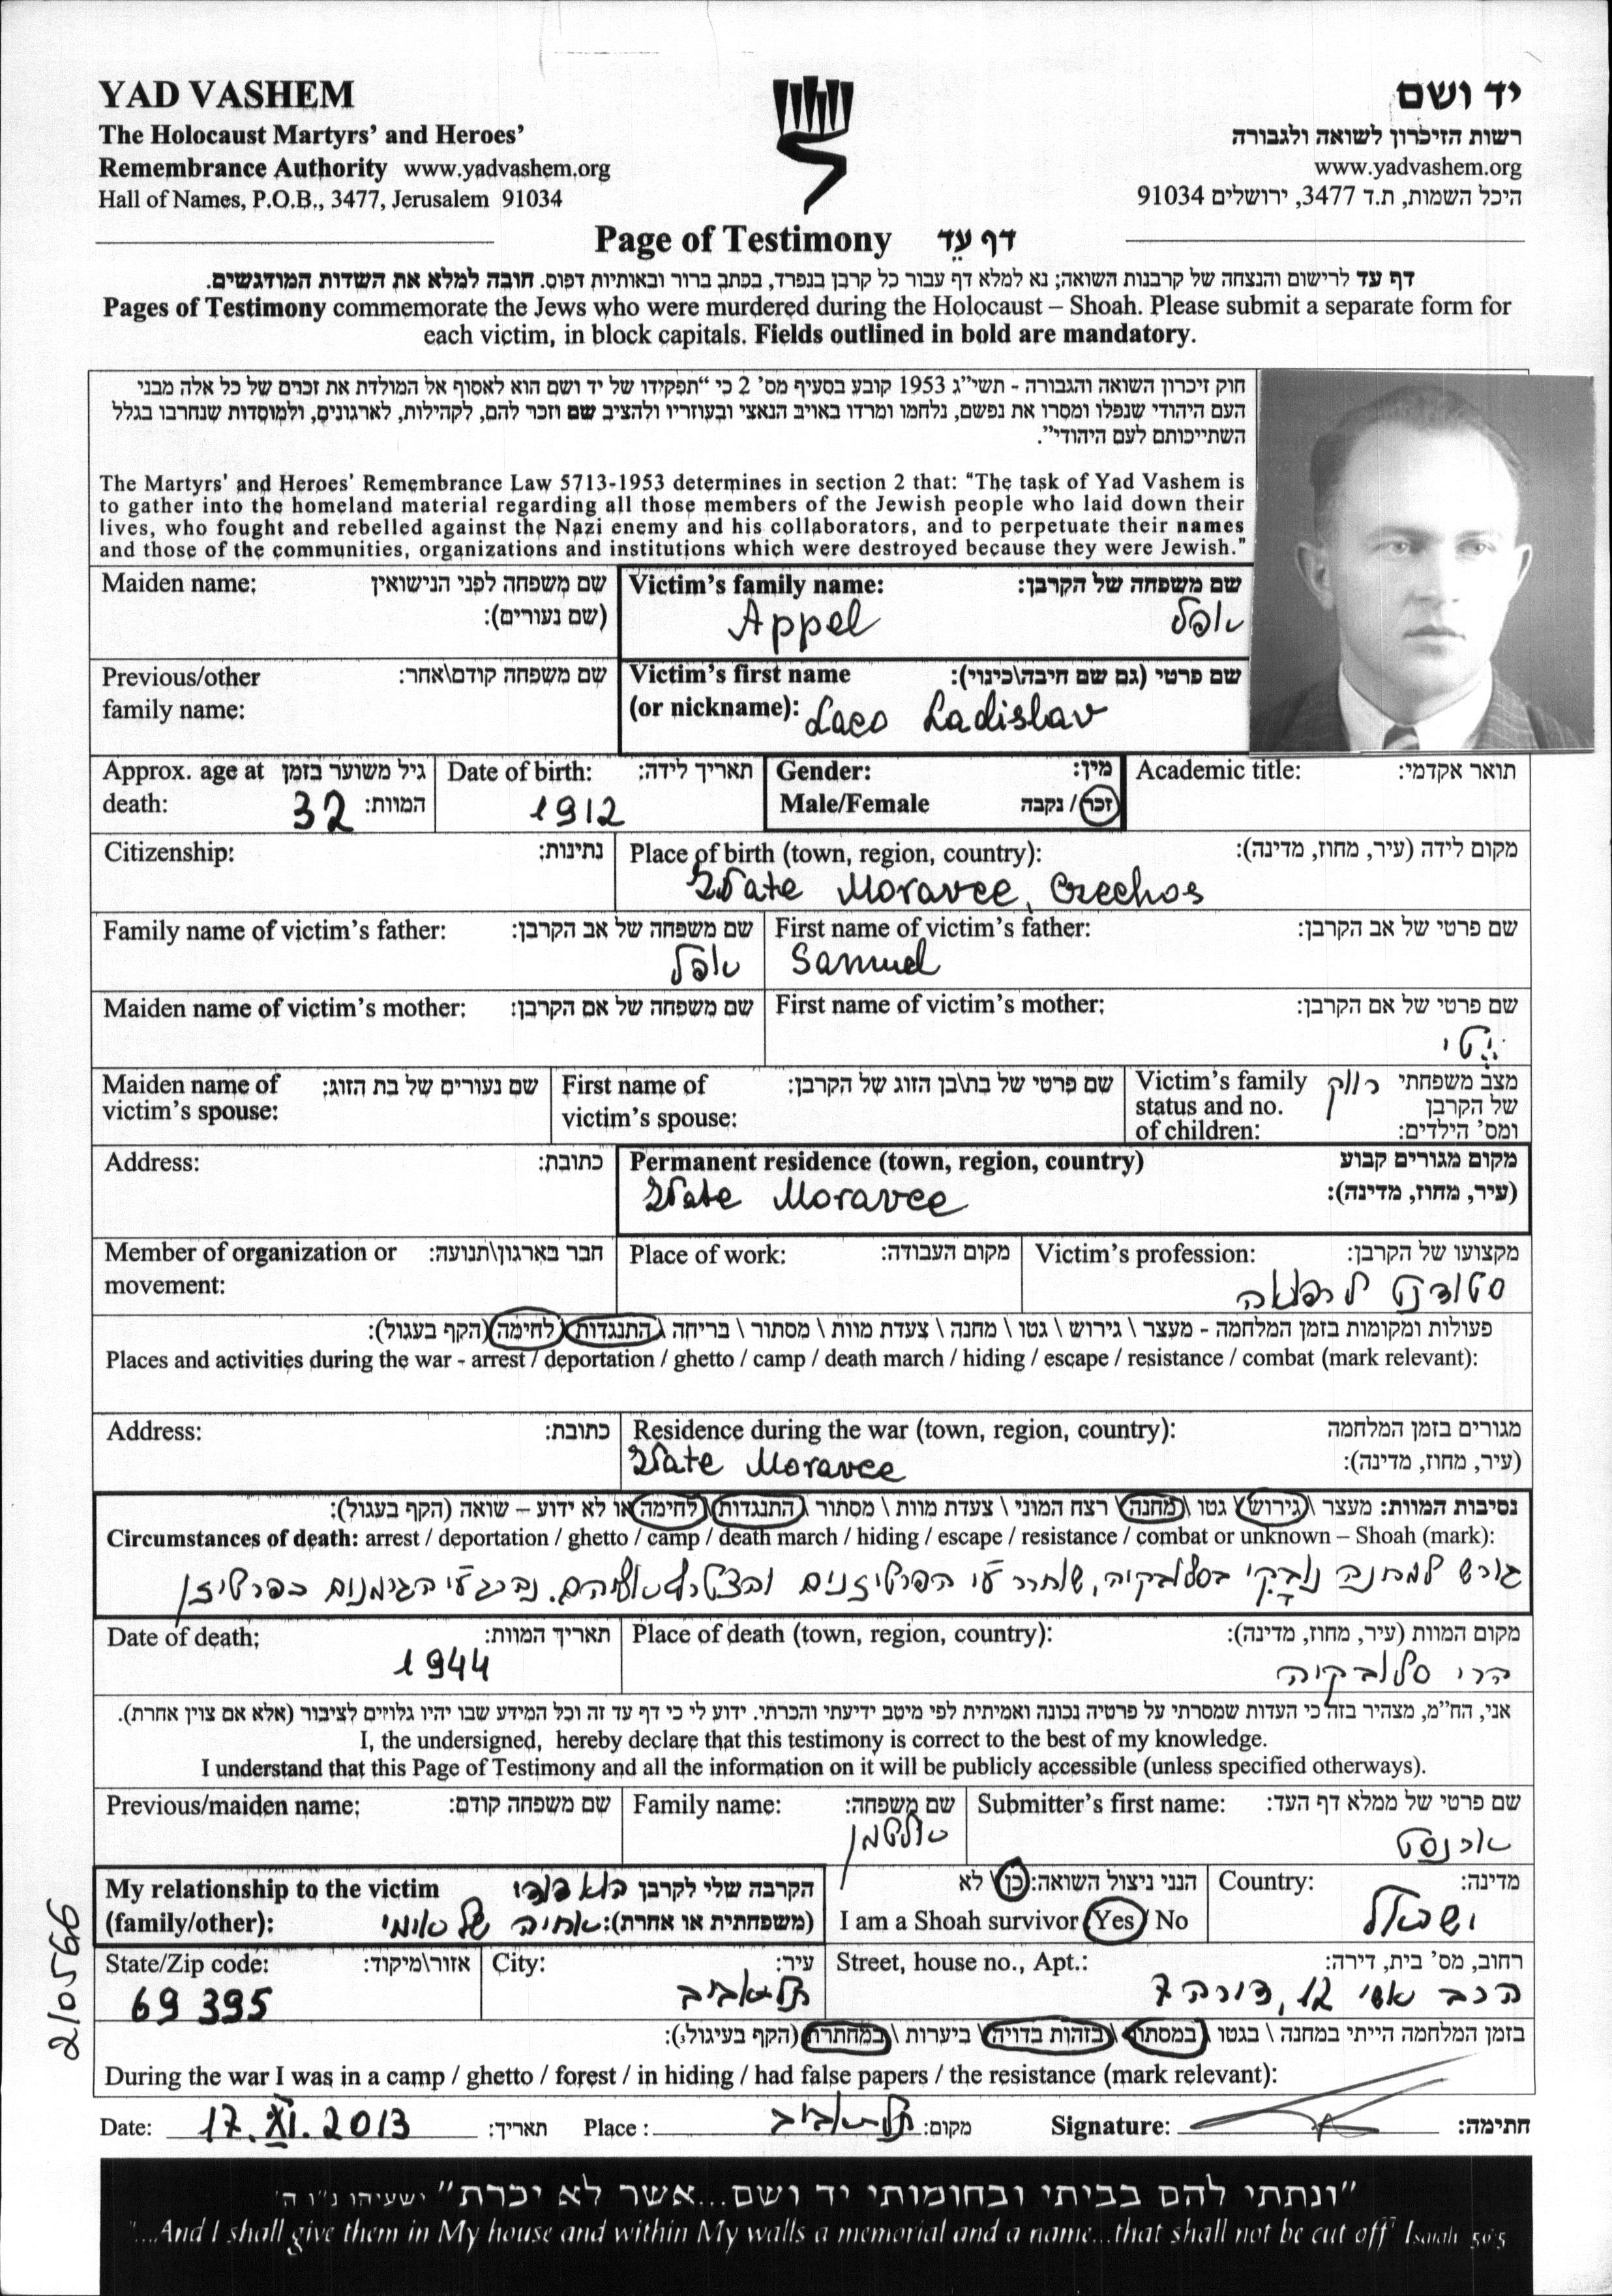 YAD VASHEM
The Holocaust Martyrs' and Heroes'
Remembrance Authority www.yadvashem.org
Hall of Names, P.O.B., 3477, Jerusalem 91034
יד ושם
רשות הזיכרון לשואה ולגבורה
www.yadvashem.org
היכל השמות, ת.ד 3477, ירושלים 91034
Page of Testimony דף עֵד
דף עד לרישום והנצחה של קרבנות השואה; נא למלא דף עבור כל קרבן בנפרד, בכתב ברור ובאותיות דפוס. חובה למלא את השדות המודגשים.
Pages of Testimony commemorate the Jews who were murdered during the Holocaust – Shoah. Please submit a separate form for
each victim, in block capitals. Fields outlined in bold are mandatory.
חוק זיכרון השואה והגבורה - תשי"ג 1953 קובע בסעיף מס' 2 כי "תפקידו של יד ושם הוא לאסוף אל המולדת את זכרם של כל אלה מבני
העם היהודי שנפלו ומסרו את נפשם, נלחמו ומרדו באויב הנאצי ובעוזריו ולהציב שם וזכר להם, לקהילות, לארגונים, ולמוסדות שנחרבו בגלל
השתייכותם לעם היהודי".
The Martyrs' and Heroes' Remembrance Law 5713-1953 determines in section 2 that: "The task of Yad Vashem is
to gather into the homeland material regarding all those members of the Jewish people who laid down their
lives, who fought and rebelled against the Nazi enemy and his collaborators, and to perpetuate their names
and those of the communities, organizations and institutions which were destroyed because they were Jewish."
Maiden name: שם משפחה לפני הנישואין
(שם נעורים):
Victim's family name: שם משפחה של הקרבן:
Appel אפל
Previous/other שם משפחה קודם\אחר:
family name:
Victim's first name שם פרטי (גם שם חיבה\כינוי):
(or nickname): Laco Ladislav
Approx. age at גיל משוער בזמן
death: 32 המוות:
Date of birth: תאריך לידה:
1912
Gender: מין:
Male/Female זכר / נקבה
Academic title: תואר אקדמי:
Citizenship: נתינות:
Place of birth (town, region, country): מקום לידה (עיר, מחוז, מדינה):
Zlate Moravce, Czechos
Family name of victim's father: שם משפחה של אב הקרבן:
אפל
First name of victim's father: שם פרטי של אב הקרבן:
Samuel
Maiden name of victim's mother: שם משפחה של אם הקרבן:
First name of victim's mother: שם פרטי של אם הקרבן:
Maiden name of שם נעורים של בת הזוג:
victim's spouse:
First name of שם פרטי של בת\בן הזוג של הקרבן:
victim's spouse:
Victim's family מצב משפחתי רווק
status and no. של הקרבן
of children: ומס' הילדים:
Address: כתובת:
Permanent residence (town, region, country) מקום מגורים קבוע
(עיר, מחוז, מדינה):
Zlate Moravce
Member of organization or חבר בארגון\תנועה:
movement:
Place of work: מקום העבודה:
Victim's profession: מקצועו של הקרבן:
סטודנט לרפואה
פעולות ומקומות בזמן המלחמה - מעצר \ גירוש \ גטו \ מחנה \ צעדת מוות \ מסתור \ בריחה \ התנגדות \ לחימה (הקף בעגול):
Places and activities during the war - arrest / deportation / ghetto / camp / death march / hiding / escape / resistance / combat (mark relevant):
Address: כתובת:
Residence during the war (town, region, country): מגורים בזמן המלחמה
(עיר, מחוז, מדינה):
Zlate Moravce
נסיבות המוות: מעצר \ גירוש \ גטו \ מחנה \ רצח המוני \ צעדת מוות \ מסתור \ התנגדות \ לחימה או לא ידוע – שואה (הקף בעגול):
Circumstances of death: arrest / deportation / ghetto / camp / death march / hiding / escape / resistance / combat or unknown – Shoah (mark):
גורש למחנה נובקי בסלובקיה, שוחרר ע"י הפרטיזנים והצטרף אליהם. נהרג ע"י הגרמנים כפרטיזן
Date of death: תאריך המוות:
1944
Place of death (town, region, country): מקום המוות (עיר, מחוז, מדינה):
הרי סלובקיה
אני, הח"מ, מצהיר בזה כי העדות שמסרתי על פרטיה נכונה ואמיתית לפי מיטב ידיעתי והכרתי. ידוע לי כי דף עד זה וכל המידע שבו יהיו גלויים לציבור (אלא אם צוין אחרת).
I, the undersigned, hereby declare that this testimony is correct to the best of my knowledge.
I understand that this Page of Testimony and all the information on it will be publicly accessible (unless specified otherways).
Previous/maiden name: שם משפחה קודם:
Family name: שם משפחה:
אלטמן
Submitter's first name: שם פרטי של ממלא דף העד:
ארנסט
My relationship to the victim הקרבה שלי לקרבן
(family/other): (משפחתית או אחרת): אחיה של אימי
הנני ניצול השואה: כן \ לא
I am a Shoah survivor Yes / No
Country: מדינה:
ישראל
State/Zip code: אזור\מיקוד:
69 395
City: עיר:
תל אביב
Street, house no., Apt.: רחוב, מס' בית, דירה:
הרב אשי 12, דירה 7
בזמן המלחמה הייתי במחנה \ בגטו \ במסתור \ בזהות בדויה \ ביערות \ במחתרת (הקף בעיגול):
During the war I was in a camp / ghetto / forest / in hiding / had false papers / the resistance (mark relevant):
Date: 17.XI.2013 תאריך: Place: תל אביב מקום: Signature: חתימה:
"ונתתי להם בביתי ובחומותי יד ושם...אשר לא יכרת" ישעיהו נ"ו ה'
"...And I shall give them in My house and within My walls a memorial and a name...that shall not be cut off" Isaiah 56:5
210566